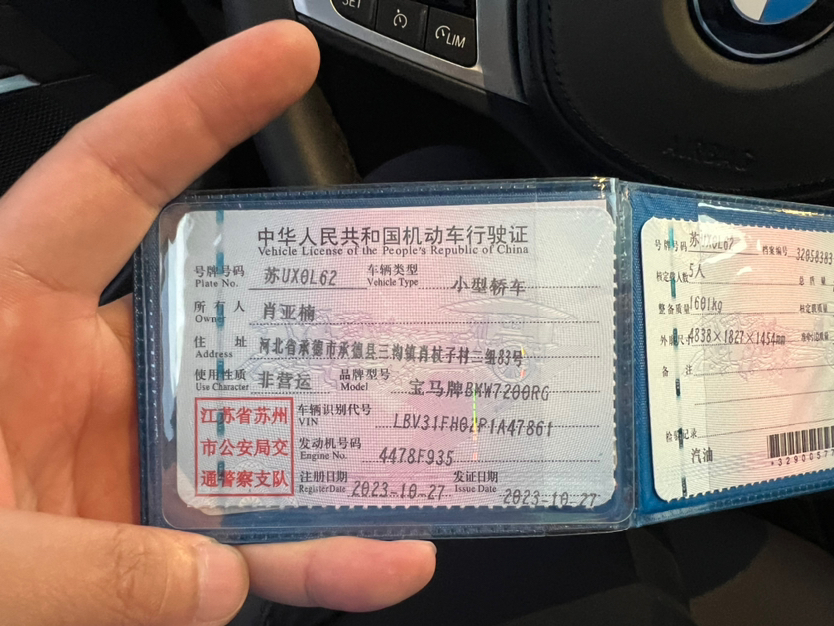 SET
LIM
AIRBAG
中华人民共和国机动车行驶证
Vehicle License of the People's Republic of China
号牌号码 苏UX0L62 车辆类型 小型轿车
Plate No. Vehicle Type
所有人 肖亚楠
Owner
住址 河北省承德市承德县三沟镇肖杖子村二组83号
Address
使用性质 非营运 品牌型号 宝马牌BMW7200RG
Use Character Model
江苏省苏州
市公安局交
通警察支队
车辆识别代号
VIN
发动机号码 4478F935
Engine No.
注册日期 2023-10-27 发证日期 2023-10-27
Register Date Issue Date
号牌号码 苏UX0L62 档案编号
核定载人数 5人 总质量
整备质量 1601kg 核定载质量
外廓尺寸 4838×1827×1454mm
备注
检验记录
汽油